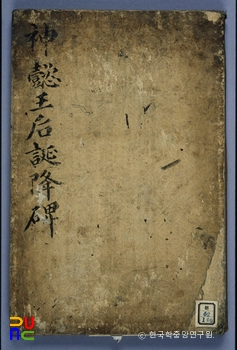 神懿王后誕降碑
ⓒ 한국학중앙연구원